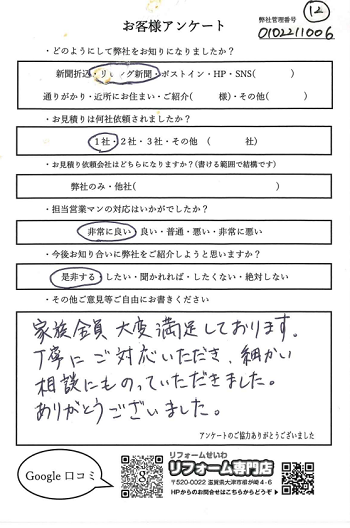 12
お客様アンケート
弊社管理番号
0102211006
・どのようにして弊社をお知りになりましたか？
新聞折込・リビング新聞・ポストイン・HP・SNS(　　　)
通りがかり・近所にお住まい・ご紹介(　　　様)・その他(　　　)
・お見積りは何社依頼されましたか？
1社・2社・3社・その他　(　　　社)
・お見積り依頼会社はどちらになりますか？(書ける範囲で結構です)
弊社のみ・他社(　　　)
・担当営業マンの対応はいかがでしたか？
非常に良い・良い・普通・悪い・非常に悪い
・今後お知り合いに弊社をご紹介しようと思いますか？
是非する・したい・聞かれれば・したくない・絶対しない
・その他ご意見等ご自由にお書きください
家族全員 大変満足しております。
丁寧に ご対応いただき、細かい
相談にものっていただきました。
ありがとうございました。
アンケートのご協力ありがとうございました
Google 口コミ
リフォームせいわ
リフォーム専門店
〒520-0022 滋賀県大津市柳が崎4-6
HPからのお問合せはこちらからどうぞ▶